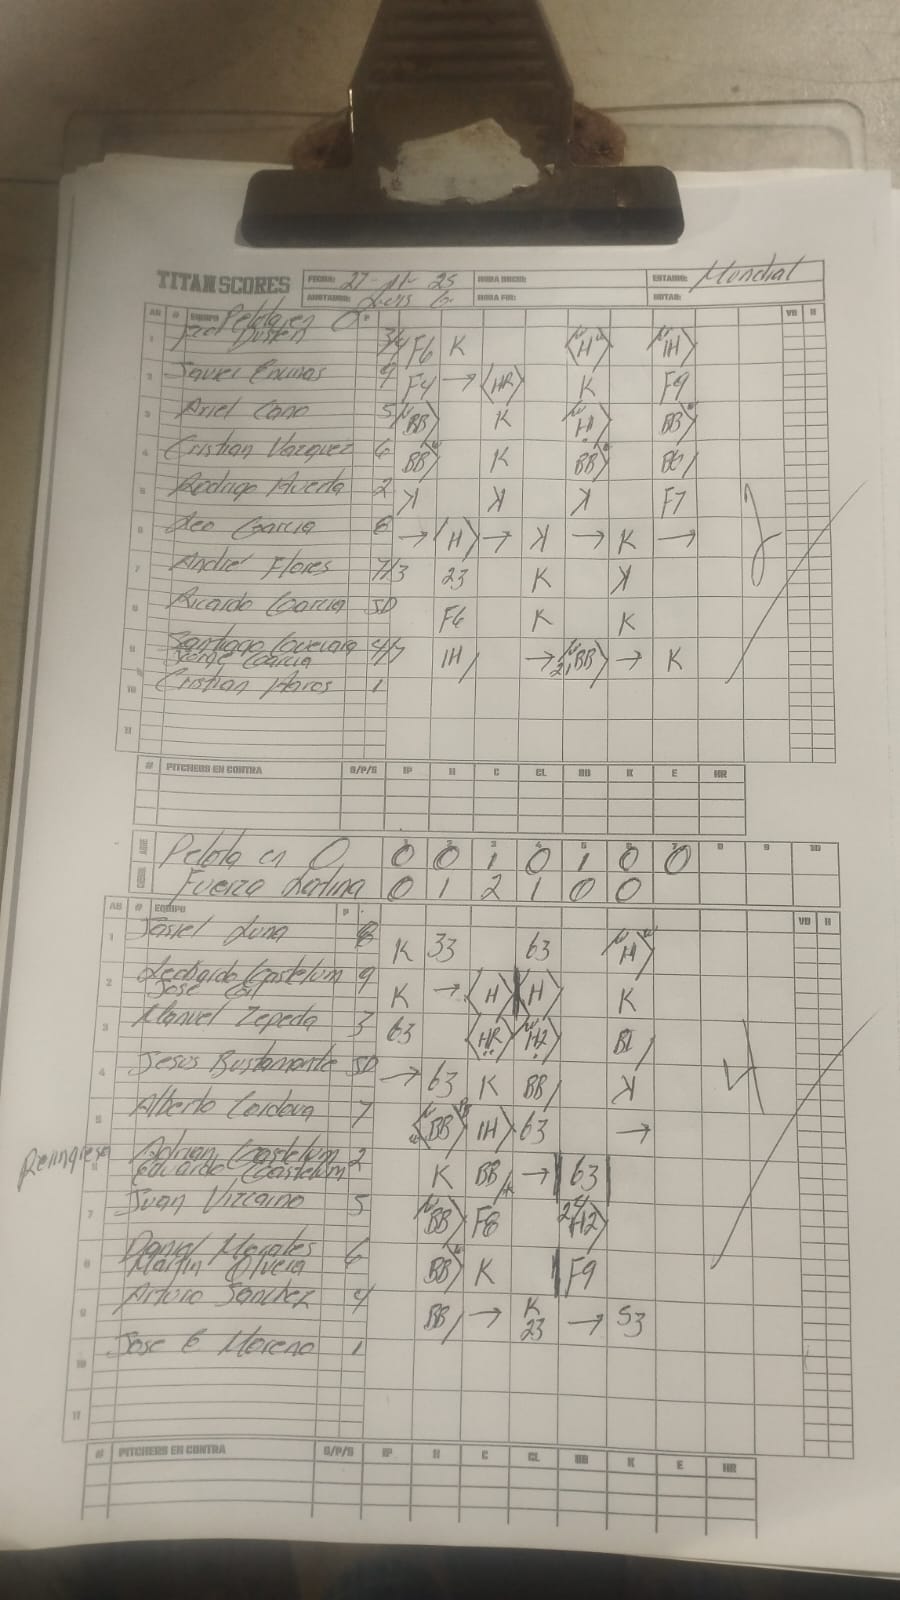 TITAN SCORES FECHA: 27-11-25 HORA INICIO: ESTADIO: Mundial
ANOTADOR: Luis G. HORA FIN: NOTAS:
AB # EQUIPO Pelota en O P VB H
1 Dustin 3/4 F6 K H 1H
2 Javier Encinas 9 F4 → HR K F9
3 Ariel Cano 5 BB K H1 BB
4 Cristian Vazquez 6 BB K BB BB
5 Rodrigo Huerta 2 K K K F7
6 Leo Garcia 8 → H → K → K →
7 André Flores 7/3 23 K K
8 Ricardo Garcia SD F6 K K
9 Santiago 4/7 1H → BB → K
Jorge Garcia
10 Cristian Haros 1
11
# PITCHERS EN CONTRA G/P/S IP H C CL BB K E HR
Pelota en O 0 0 1 0 1 0 0 8 9 10
Fuerza Latina 0 1 2 1 0 0
AB # EQUIPO P VB H
1 Jasiel Luna 8 K 33 63 H
2 Leobardo Castelum 9 K → H H K
Jose
3 Manuel Zepeda 3 63 HR H2 BI
4 Jesus Bustamante SD → 63 K BB K
5 Alberto Cordova 7 BB 1H 63 →
Reingreso
6 Adrian Castelum 2 K BB → 63
Eduardo Castelum
7 Juan Vizcaino 5 BB F8 H2
8 Daniel Morales 6 BB K F9
Martin Olvera
9 Arturo Sanchez 4 BB → K 23 → 53
10 Jose E Moreno 1
11
# PITCHERS EN CONTRA G/P/S IP H C CL BB K E HR